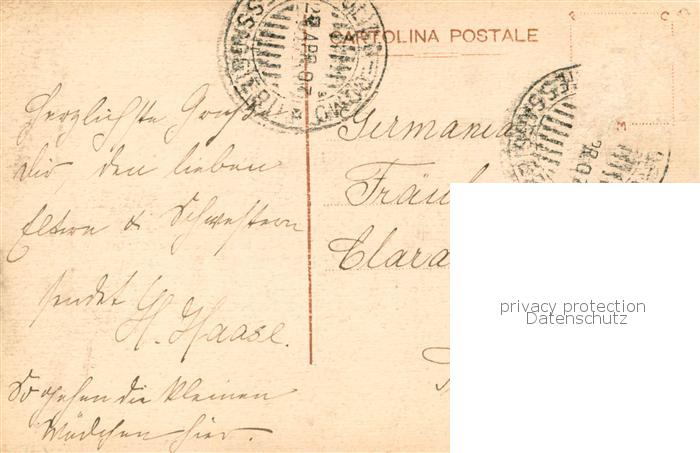 CARTOLINA POSTALE
28 APR 07
Herzlichste Grüße
Dir, den lieben
Eltern & Schwestern
sendet
H. Haase.
So gehen die kleinen
Mädchen hier.
Germania
Fräul
Clara
privacy protection
Datenschutz